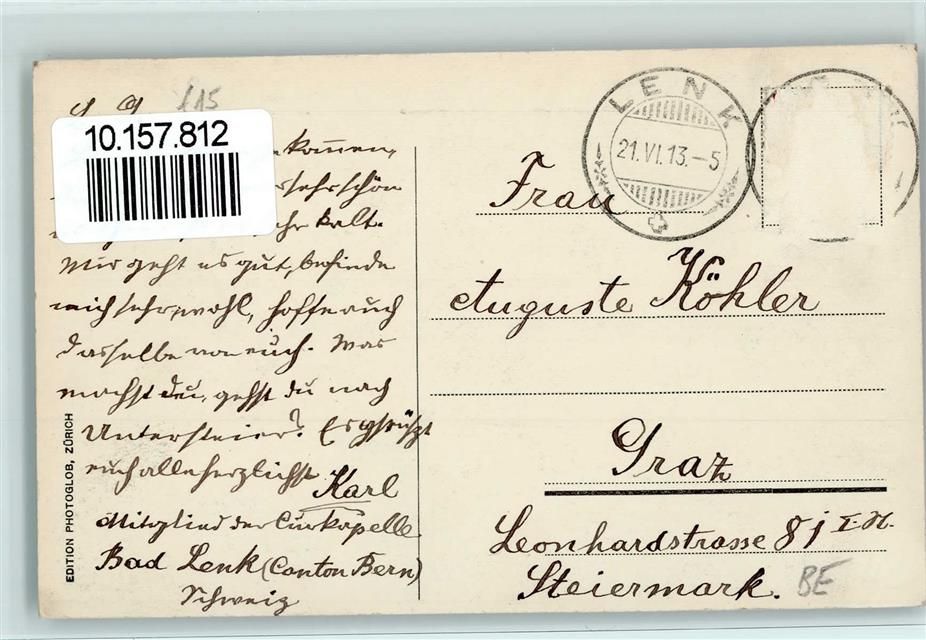 115
10.157.812
kommen,
sehr schön
kalt.
Mir geht es gut, befinde
mich sehr wohl, hoffe auch
dasselbe von euch. Was
machst du, gehst du nach
Untersteier? Es grüßt
euch alle herzlichst
Karl
Mitglied der Curkapelle
Bad Lenk (Canton Bern)
Schweiz
EDITION PHOTOGLOB, ZÜRICH
LENK
21.VI.13.-5
Frau
Auguste Köhler
Graz
Leonhardstrasse 8
Steiermark.
BE